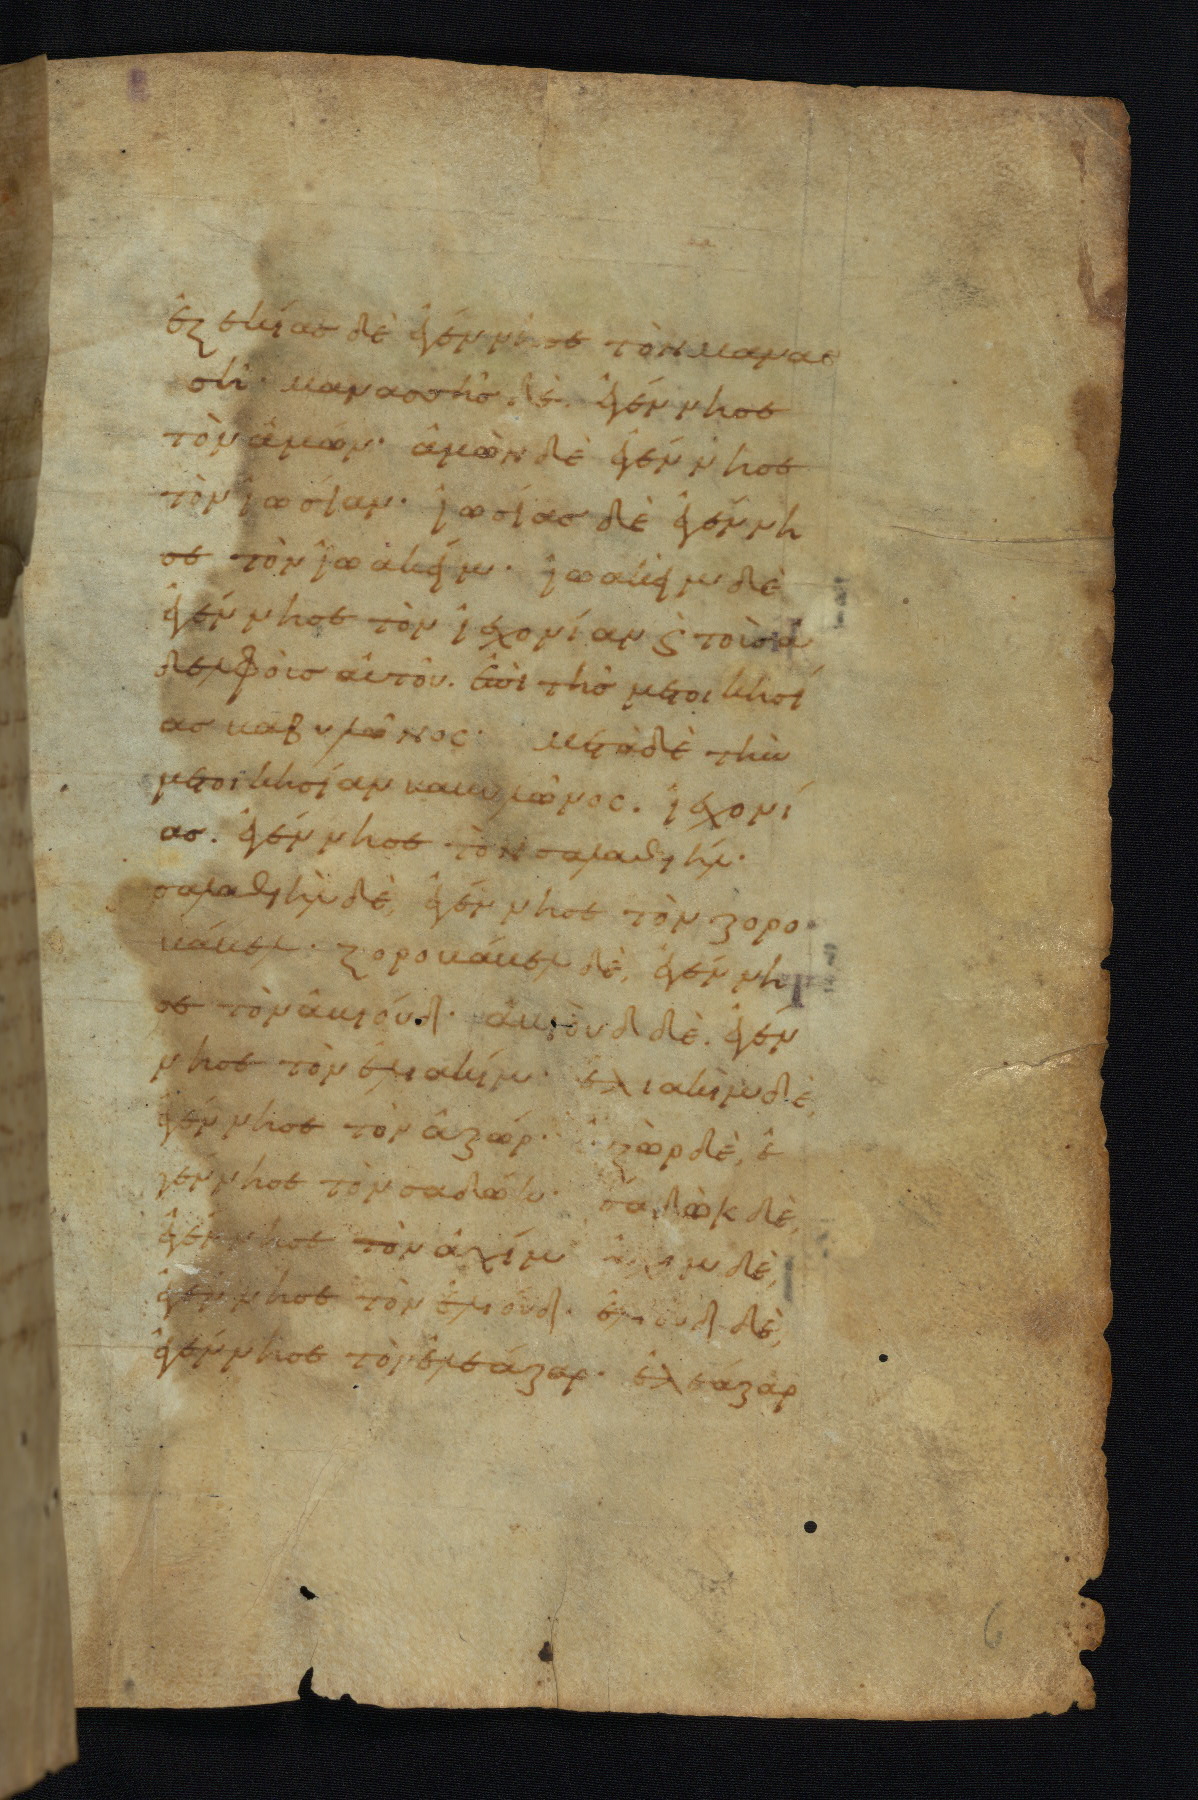 ἐζεκίας δὲ ἐγέννησε τὸν μανασ
σῆ· μανασσῆς δὲ. ἐγέννησε
τὸν ἀμών· ἀμὼν δὲ ἐγέννησε
τὸν ἰωσίαν· ἰωσίας δὲ ἐγέννη
σε τὸν ἰωακείμ· ἰωακεὶμ δὲ
ἐγέννησε τὸν ἰεχονίαν ϛ τοὺς ἀ
δελφοὺς αὐτοῦ. ἐπὶ τῆς μετοικεσί
ας βαβυλῶνος· Μετὰ δὲ τὴν
μετοικεσίαν βαβυλῶνος. ἰεχονί
ας. ἐγέννησε τὸν σαλαθιήλ·
σαλαθιὴλ δὲ, ἐγέννησε τὸν ζορο
βάβελ· ζοροβάβελ δὲ, ἐγέννη
σε τὸν ἀβιούδ· ἀβιοὺδ δὲ. ἐγέν
νησε τὸν ἐλιακείμ· ἐλιακεὶμ δὲ,
ἐγέννησε τὸν ἀζώρ· ἀζὼρ δὲ, ἐ
γέννησε τὸν σαδώκ· σαδὼκ δὲ,
ἐγέννησε τὸν ἀχίμ· ἀχὶμ δὲ,
ἐγέννησε τὸν ἐλιούδ· ἐλιοὺδ δὲ,
ἐγέννησε τὸν ἐλεάζαρ· ἐλεάζαρ
6